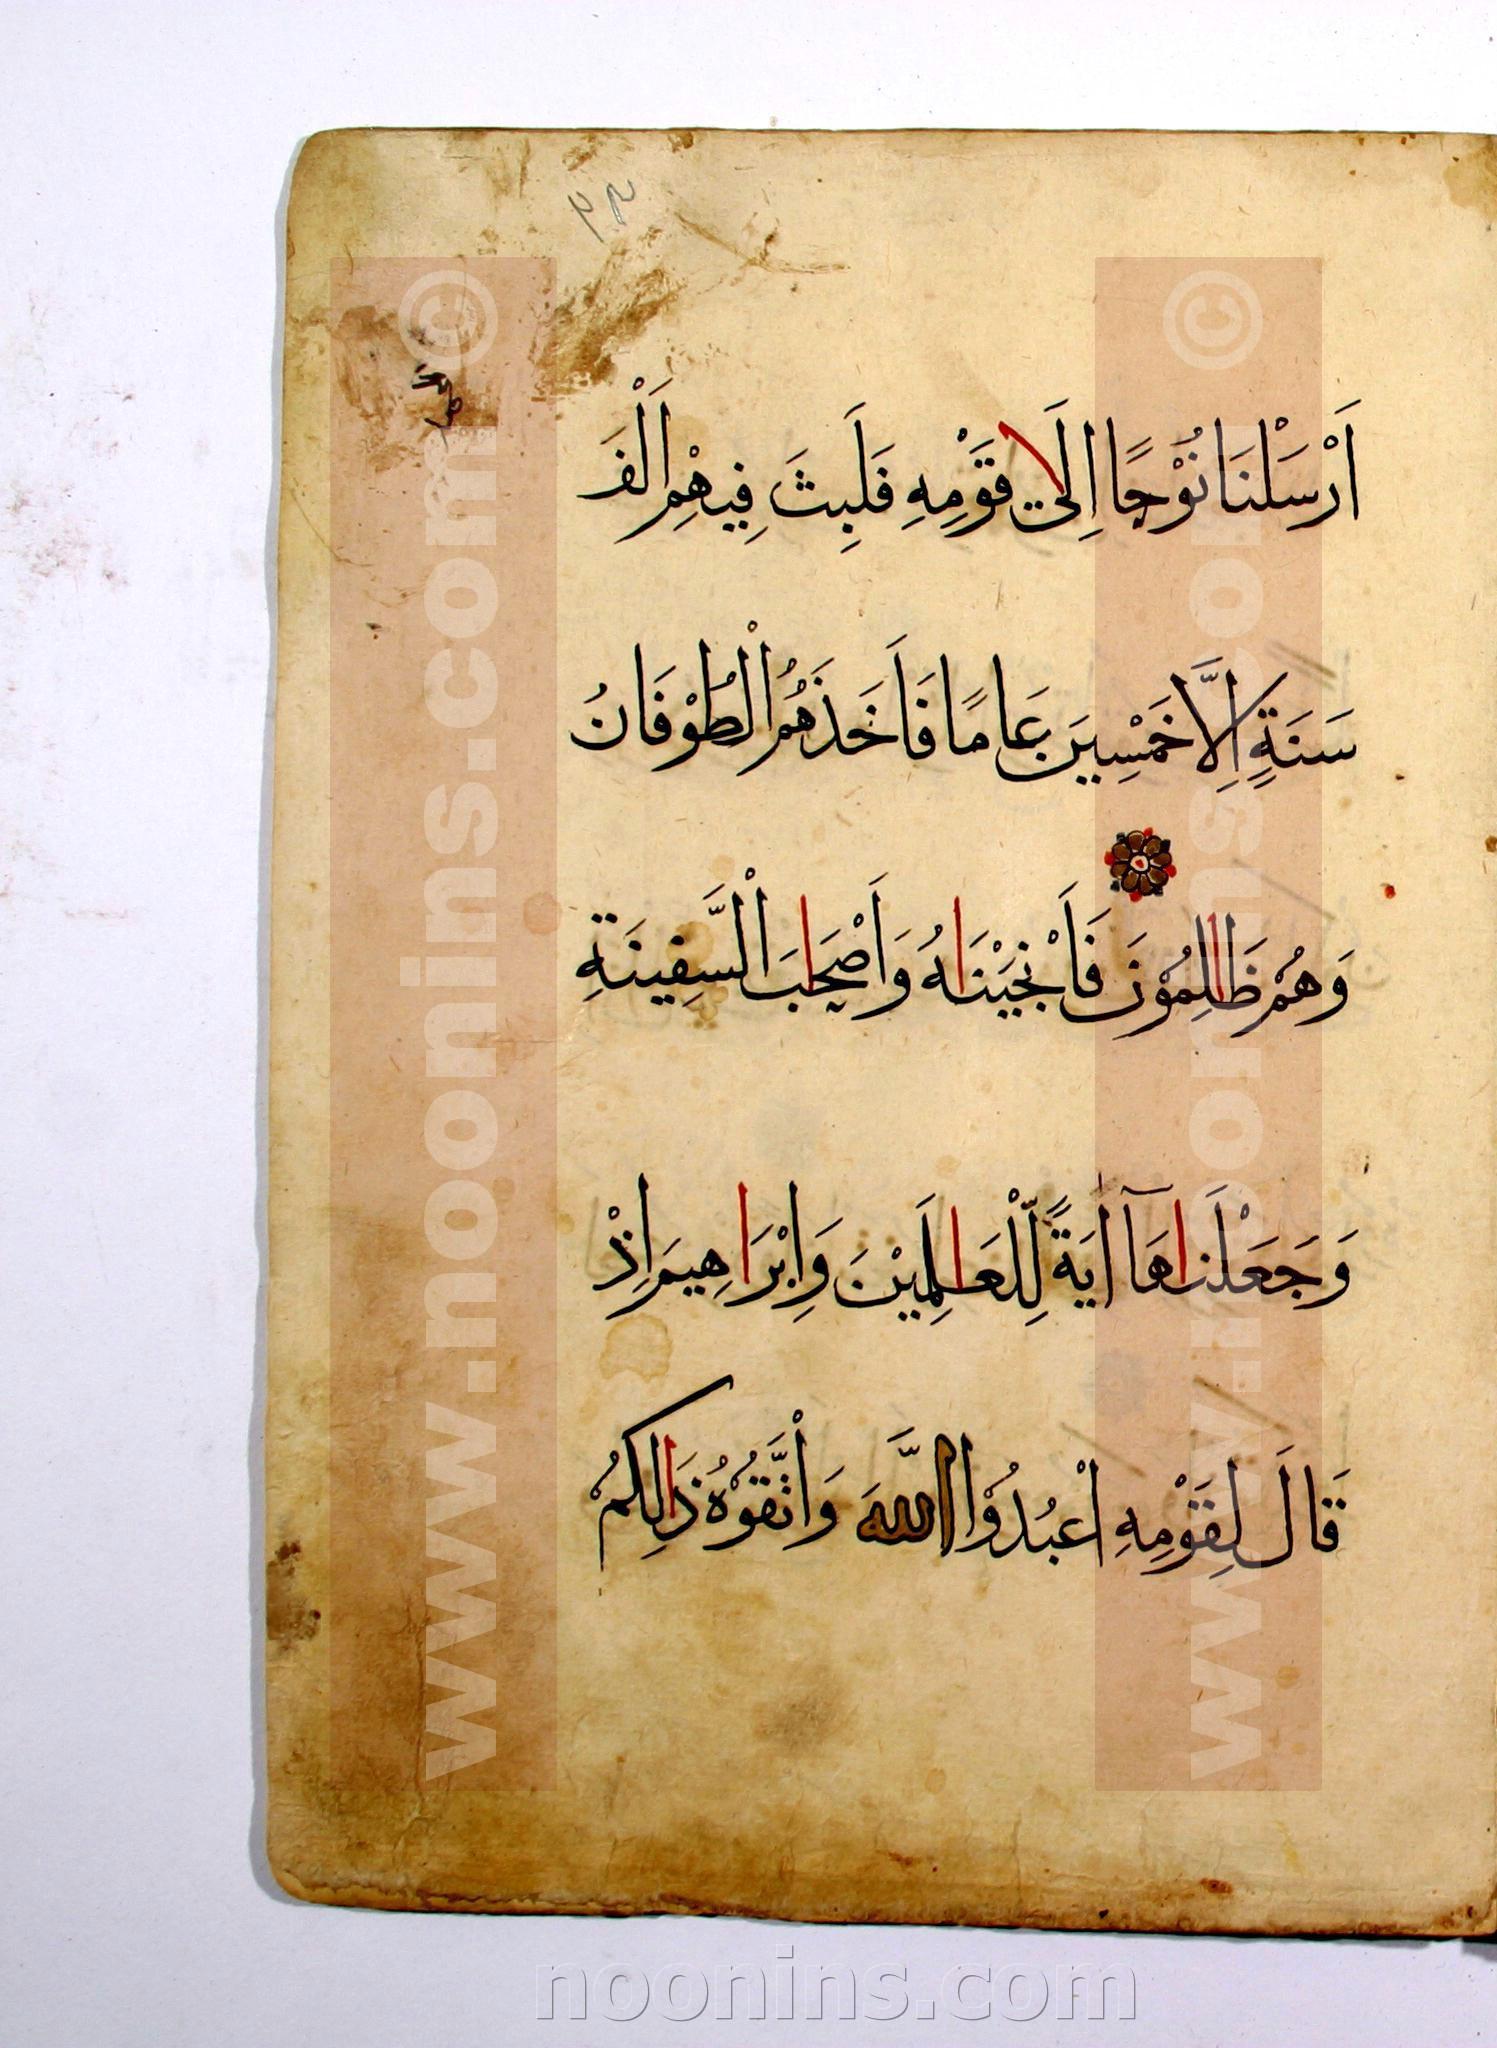 ٣٢
اَرْسَلْنَا نُوْحًا اِلٰى قَوْمِهِ فَلَبِثَ فِيهِمْ اَلْفَ
سَنَةٍ اِلَّا خَمْسِينَ عَامًا فَاَخَذَهُمُ الْطُوْفَانُ
وَهُمْ ظَالِمُوْنَ فَاَنْجَيْنَاهُ وَاَصْحَابَ الْسَّفِينَةِ
وَجَعَلْنَاهَآ اٰيَةً لِّلْعَالَمِيْنَ وَاِبْرَاهِيمَ اِذْ
قَالَ لِقَوْمِهِ اعْبُدُوْا اللَّهَ وَاتَّقُوْهُ ذَالِكُمْ
www.noonins.com ©
www.noonins.com ©
noonins.com